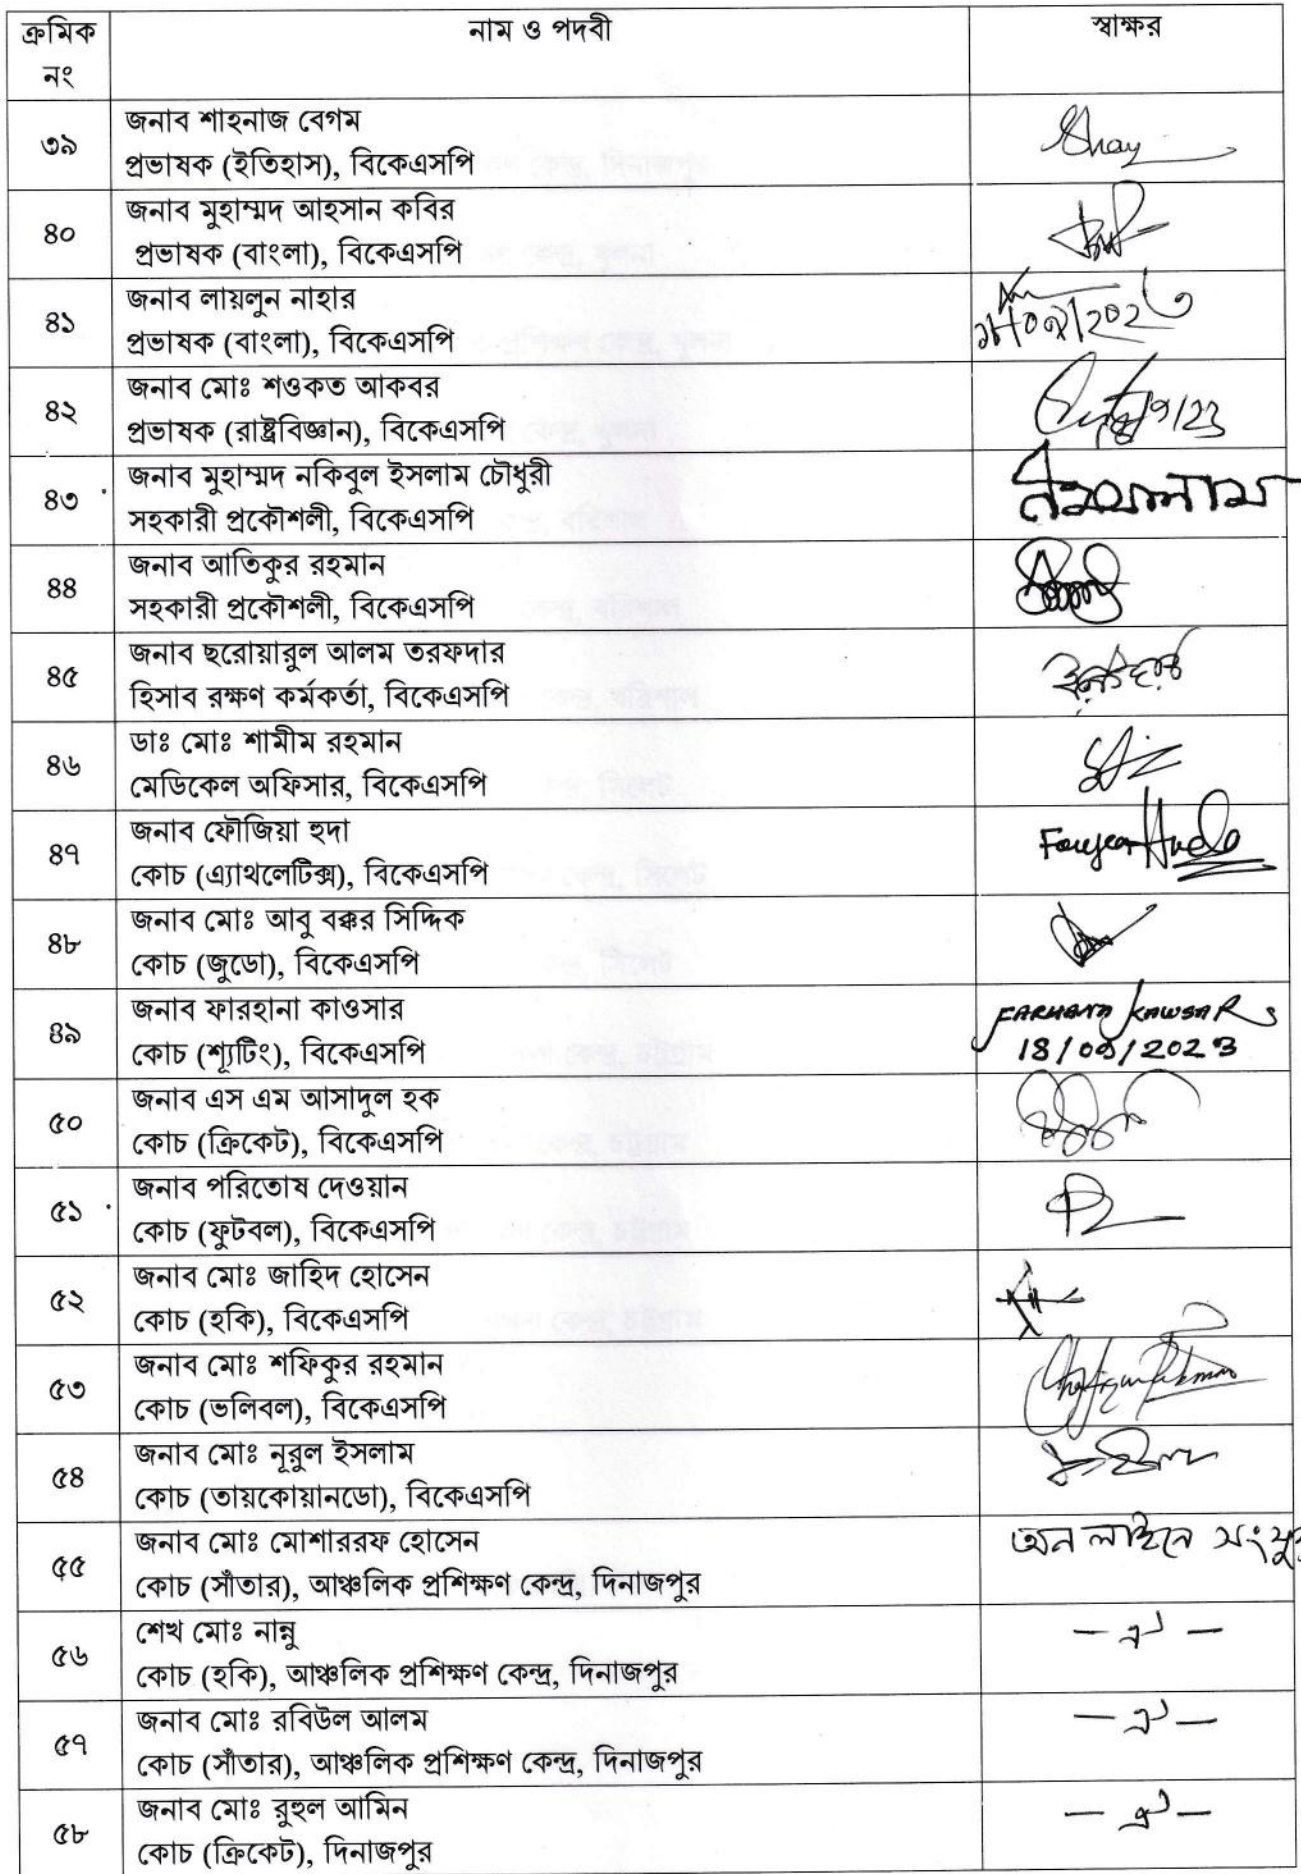 ক্রমিক নং নাম ও পদবী স্বাক্ষর
৩৯ জনাব শাহনাজ বেগম
প্রভাষক (ইতিহাস), বিকেএসপি
৪০ জনাব মুহাম্মদ আহসান কবির
প্রভাষক (বাংলা), বিকেএসপি
৪১ জনাব লায়লুন নাহার
প্রভাষক (বাংলা), বিকেএসপি
৪২ জনাব মোঃ শওকত আকবর
প্রভাষক (রাষ্ট্রবিজ্ঞান), বিকেএসপি
৪৩ জনাব মুহাম্মদ নকিবুল ইসলাম চৌধুরী
সহকারী প্রকৌশলী, বিকেএসপি
৪৪ জনাব আতিকুর রহমান
সহকারী প্রকৌশলী, বিকেএসপি
৪৫ জনাব ছরোয়ারুল আলম তরফদার
হিসাব রক্ষণ কর্মকর্তা, বিকেএসপি
৪৬ ডাঃ মোঃ শামীম রহমান
মেডিকেল অফিসার, বিকেএসপি
৪৭ জনাব ফৌজিয়া হুদা
কোচ (এ্যাথলেটিক্স), বিকেএসপি
৪৮ জনাব মোঃ আবু বক্কর সিদ্দিক
কোচ (জুডো), বিকেএসপি
৪৯ জনাব ফারহানা কাওসার FARHANA KAWSAR
কোচ (শ্যূটিং), বিকেএসপি 18/09/2023
৫০ জনাব এস এম আসাদুল হক
কোচ (ক্রিকেট), বিকেএসপি
৫১ জনাব পরিতোষ দেওয়ান
কোচ (ফুটবল), বিকেএসপি
৫২ জনাব মোঃ জাহিদ হোসেন
কোচ (হকি), বিকেএসপি
৫৩ জনাব মোঃ শফিকুর রহমান
কোচ (ভলিবল), বিকেএসপি
৫৪ জনাব মোঃ নূরুল ইসলাম
কোচ (তায়কোয়ানডো), বিকেএসপি
৫৫ জনাব মোঃ মোশাররফ হোসেন অন লাইনে
কোচ (সাঁতার), আঞ্চলিক প্রশিক্ষণ কেন্দ্র, দিনাজপুর
৫৬ শেখ মোঃ নান্নু — ঐ —
কোচ (হকি), আঞ্চলিক প্রশিক্ষণ কেন্দ্র, দিনাজপুর
৫৭ জনাব মোঃ রবিউল আলম — ঐ —
কোচ (সাঁতার), আঞ্চলিক প্রশিক্ষণ কেন্দ্র, দিনাজপুর
৫৮ জনাব মোঃ রুহুল আমিন — ঐ —
কোচ (ক্রিকেট), দিনাজপুর